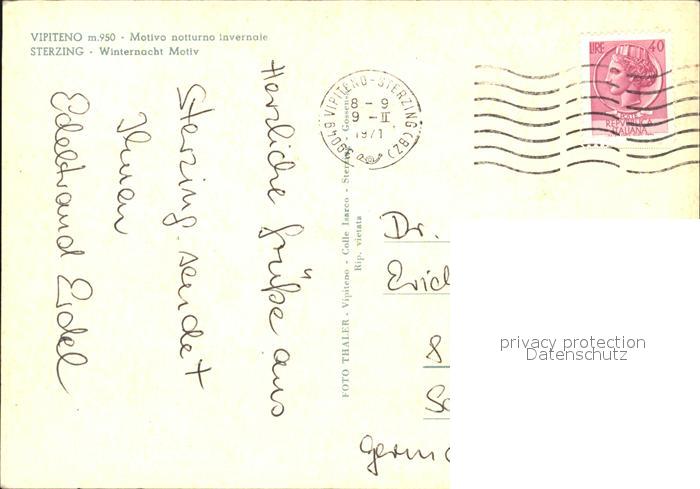 VIPITENO m.950 - Motivo notturno invernale
STERZING - Winternacht Motiv
Herzliche Grüße aus
Sterzing sendet
Ihnen
Edeltraud Eidel
39049 VIPITENO-STERZING (BZ)
8-9
9-II
1971
LIRE 40
REPUBBLICA
ITALIANA
FOTO THALER - Vipiteno - Colle Isarco - Sterzing - Gossensass
Rip. vietata
Dr.
Erich
8
privacy protection
Datenschutz